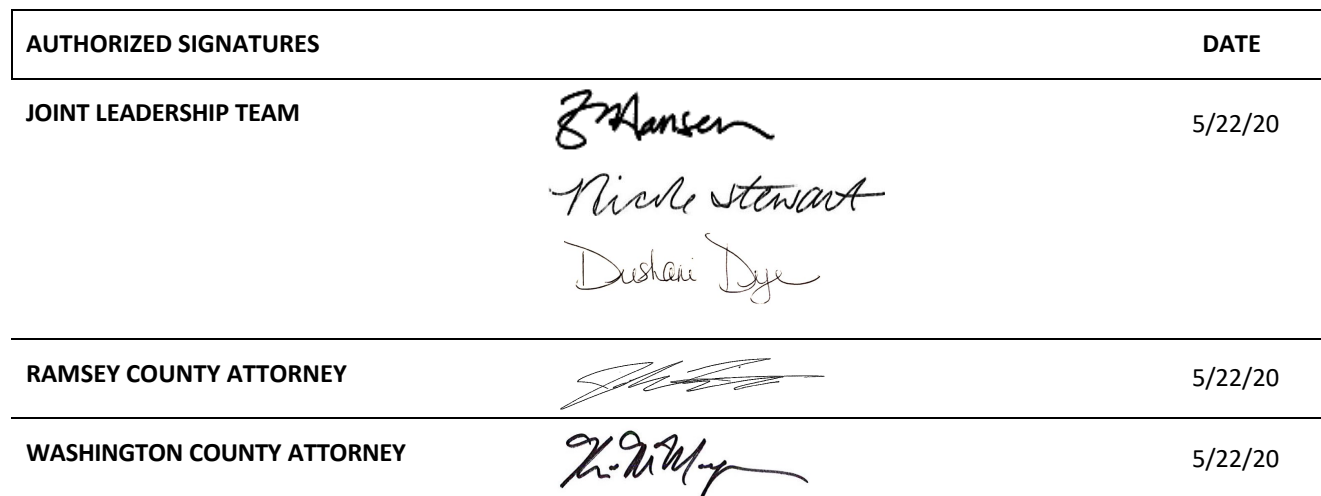 AUTHORIZED SIGNATURES DATE
JOINT LEADERSHIP TEAM Hansen 5/22/20
Nicole Stewart
Dushani Dye
RAMSEY COUNTY ATTORNEY 5/22/20
WASHINGTON COUNTY ATTORNEY 5/22/20